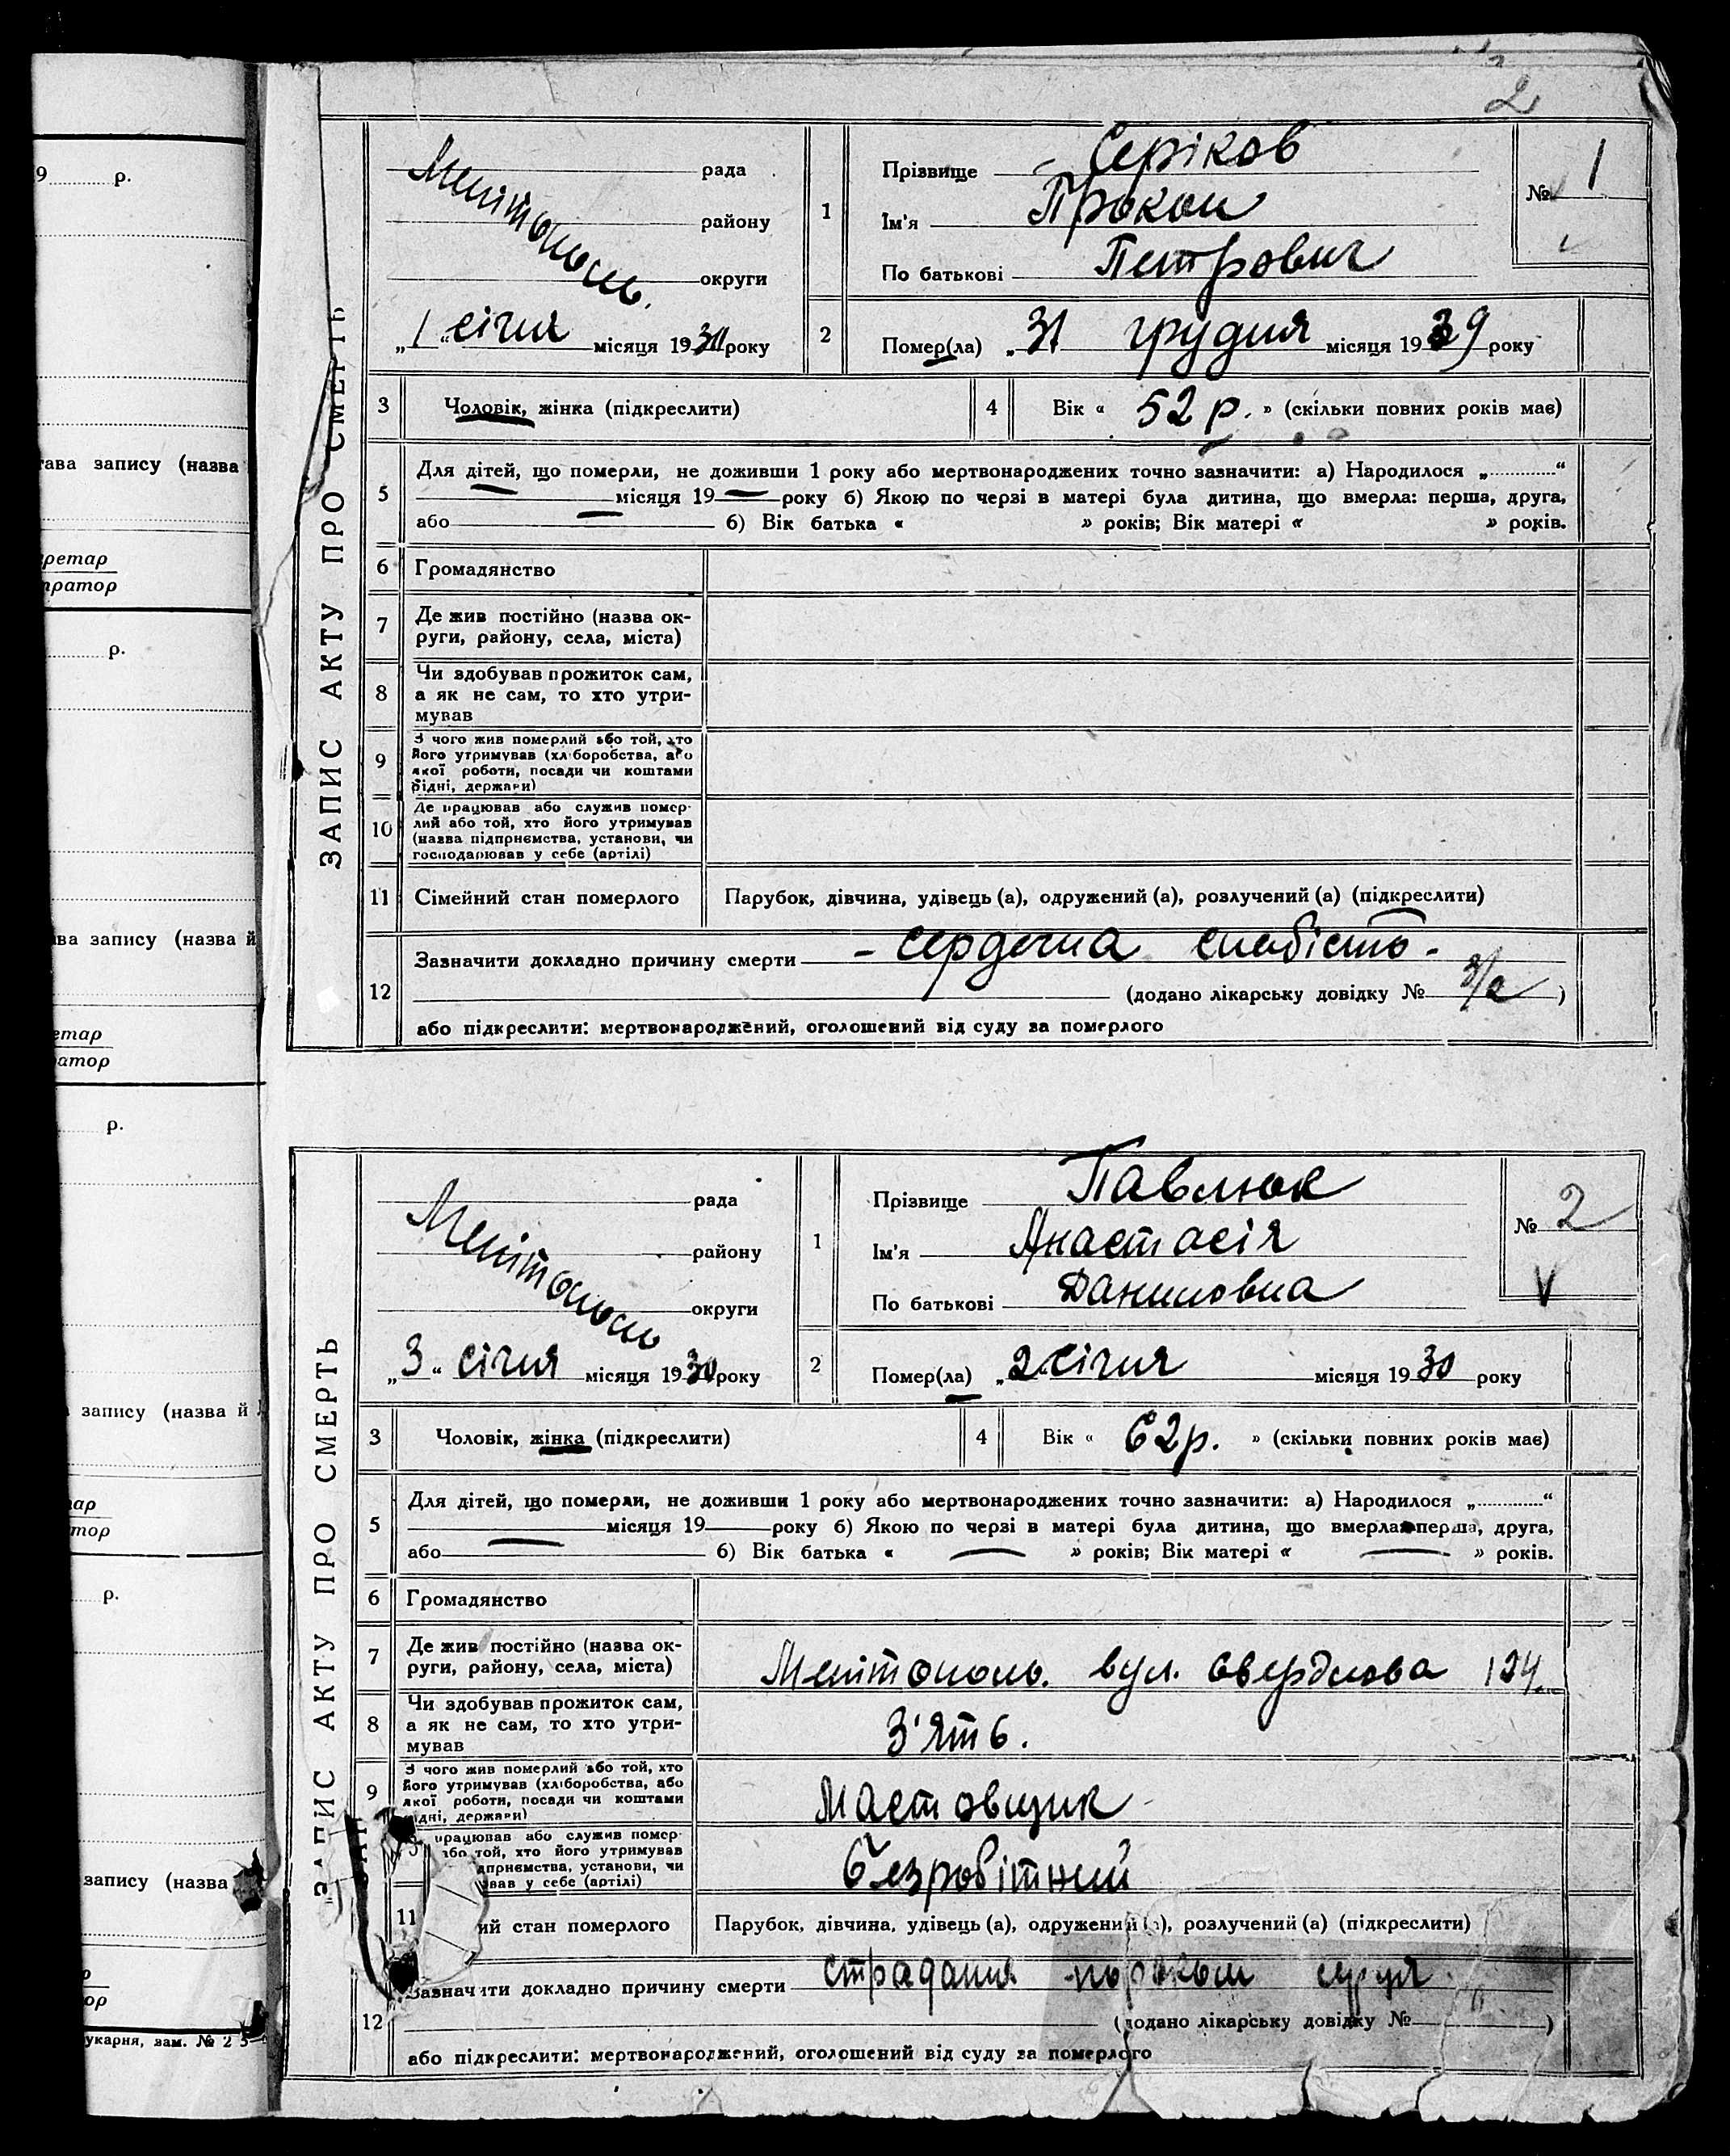 2
ЗАПИС АКТУ ПРО СМЕРТЬ
Мелітополь
рада
району
округи
„1“ січня місяця 1930 року
1
Прізвище Серіков
Ім'я Прокоп
По батькові Петрович
№ 1
2
Помер(ла) „31 грудня місяця 1929 року
3 Чоловік, жінка (підкреслити)
4 Вік « 52 р. » (скільки повних років має)
5
Для дітей, що померли, не доживши 1 року або мертвонароджених точно зазначити: а) Народилося „ “
місяця 19 — року б) Якою по черзі в матері була дитина, що вмерла: перша, друга,
або б) Вік батька « » років; Вік матері « » років.
6 Громадянство
7
Де жив постійно (назва ок-
руги, району, села, міста)
8
Чи здобував прожиток сам,
а як не сам, то хто утри-
мував
9
З чого жив померлий або той, хто
його утримував (хліборобства, або
якої роботи, посади чи коштами
рідні, держави)
10
Де працював або служив помер-
лий або той, хто його утримував
(назва підприємства, установи, чи
господарював у себе (артілі)
11 Сімейний стан померлого
Парубок, дівчина, удівець (а), одружений (а), розлучений (а) (підкреслити)
12
Зазначити докладно причину смерти – сердечна слабість -
(додано лікарську довідку № )
або підкреслити: мертвонароджений, оголошений від суду за померлого
ЗАПИС АКТУ ПРО СМЕРТЬ
Мелітополь
рада
району
округи
„3“ січня місяця 1930 року
1
Прізвище Павлюк
Ім'я Анастасія
По батькові Даниловна
№ 2
V
2
Помер(ла) „2 січня місяця 1930 року
3 Чоловік, жінка (підкреслити)
4 Вік « 62 р. » (скільки повних років має)
5
Для дітей, що померли, не доживши 1 року або мертвонароджених точно зазначити: а) Народилося „ “
місяця 19 року б) Якою по черзі в матері була дитина, що вмерла: перша, друга,
або б) Вік батька « — » років; Вік матері « — » років.
6 Громадянство
7
Де жив постійно (назва ок-
руги, району, села, міста)
Мелітополь. вул. Свердлова 124.
8
Чи здобував прожиток сам,
а як не сам, то хто утри-
мував
З'ять.
9
З чого жив померлий або той, хто
його утримував (хліборобства, або
якої роботи, посади чи коштами
рідні, держави)
Мастовщик
працював або служив помер-
або той, хто його утримував
у себе (артілі)
Безробітний
11
стан померлого
Парубок, дівчина, удівець (а), одружений (а), розлучений (а) (підкреслити)
12
Зазначити докладно причину смерти страдания пороком серця
(додано лікарську довідку № )
або підкреслити: мертвонароджений, оголошений від суду за померлого
9 р.
тава запису (назва
ретар
тратор
р.
ва запису (назва й
етар
ратор
р.
запису (назва й
ар
тор
р.
запису (назва
р
ор
укарня, зам. № 25